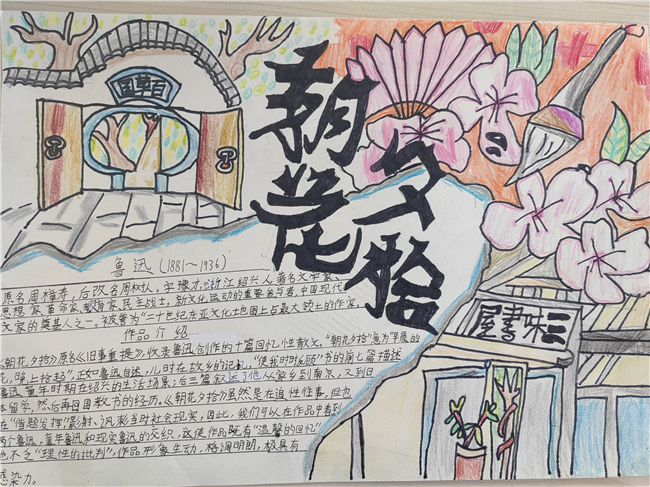 百草园
朝花夕拾
三味書屋
鲁迅(1881~1936)
原名周樟寿,后改名周树人,字豫才,浙江绍兴人,著名文学家、
思想家、革命家、教育家、民主战士,新文化运动的重要参与者,中国现代
文学的奠基人之一。被誉为“二十世纪东亚文化地图上占最大领土的作家。
作品介绍
《朝花夕拾》原名《旧事重提》,收录鲁迅创作的十篇回忆性散文,“朝花夕拾”意为“早晨的
花,晚上拾起”,正如鲁迅自述,儿时在故乡的记忆,“使我时时反顾”书的前七篇描述
鲁迅童年时期在绍兴的生活场景;后三篇叙述了他从家乡到南京,又到日
本留学,然后再回国教书的经历。《朝花夕拾》虽然是在追忆往事,但也
在“借题发挥”影射、讽刺当时社会现实,因此,我们可以在作品中看到
两个鲁迅,童年鲁迅和现实鲁迅的交织,这使作品既有“温馨的回忆”
也不乏“理性的批判”,作品形象生动,格调明朗,极具有
感染力。